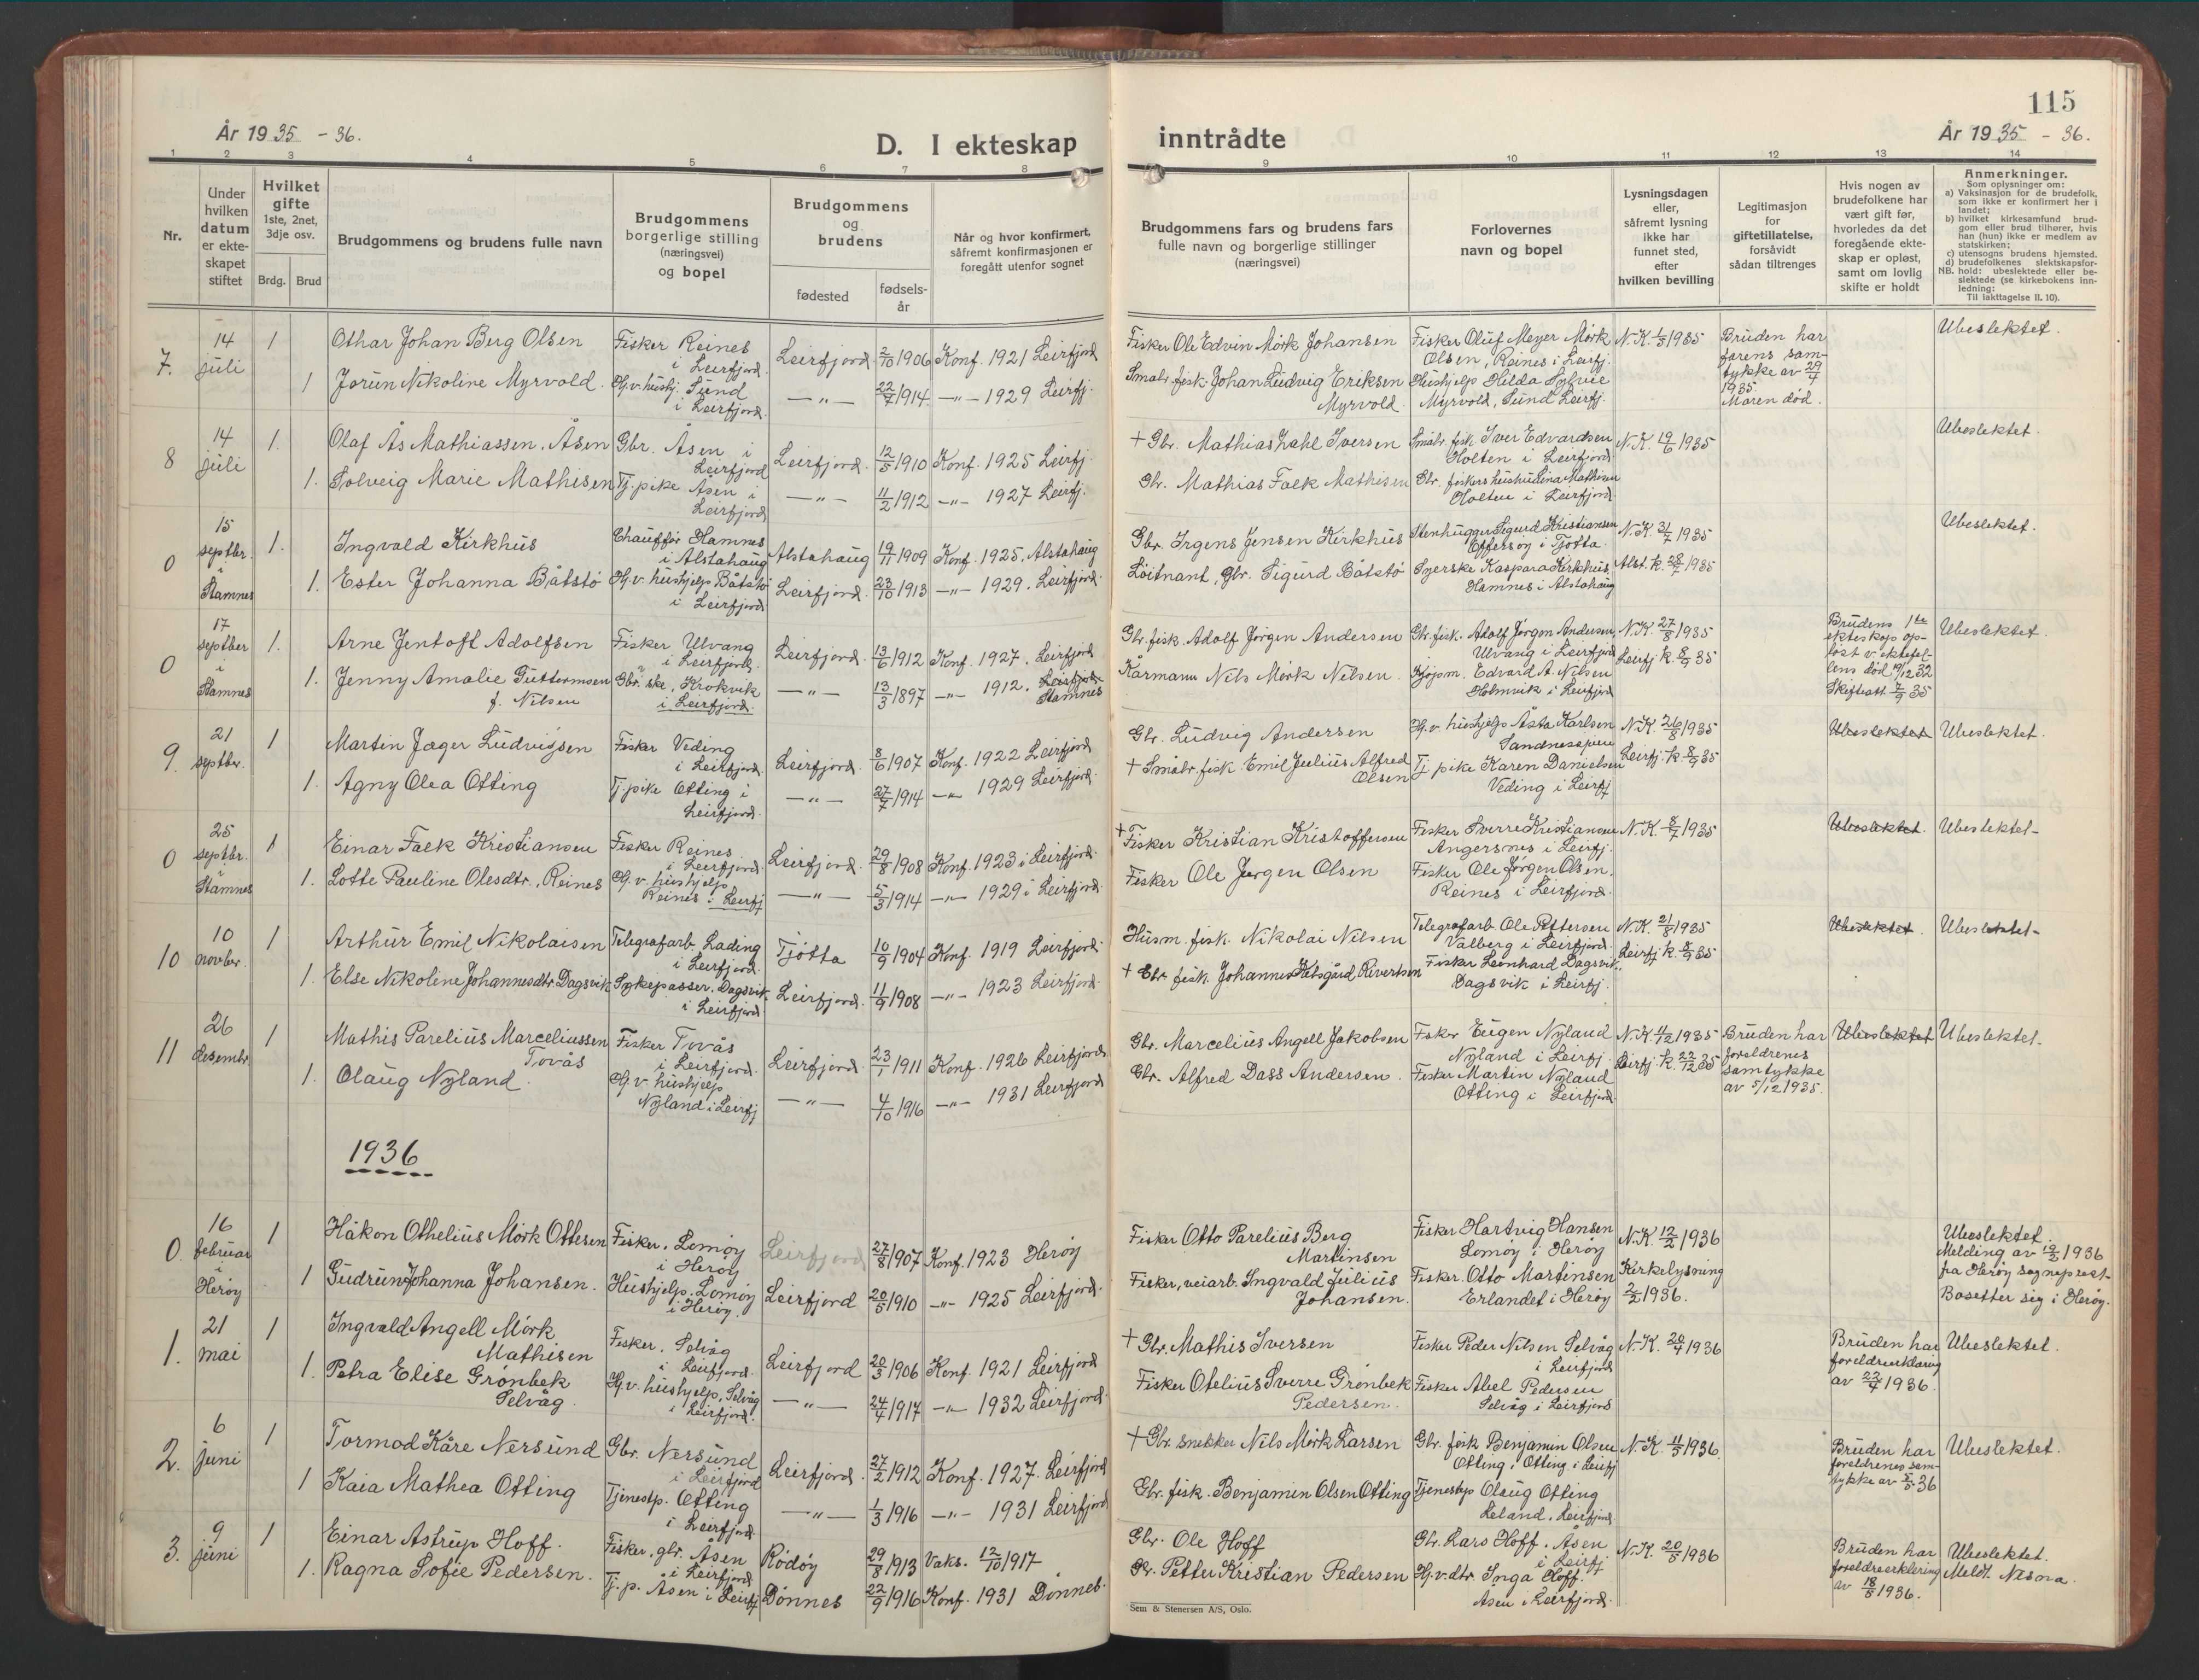 115
År 1935 - 36.
D. I ekteskap
inntrådte
År 1935 - 36.
1 2 3 4 5 6 7 8 9 10 11 12 13 14
Nr.
Under
hvilken
datum
er ekte-
skapet
stiftet
Hvilket
gifte
1ste, 2net,
3dje osv.
Brdg. Brud
Brudgommens og brudens fulle navn
Brudgommens
borgerlige stilling
(næringsvei)
og bopel
Brudgommens
og
brudens
fødested
fødsels-
år
Når og hvor konfirmert,
såfremt konfirmasjonen er
foregått utenfor sognet
Brudgommens fars og brudens fars
fulle navn og borgerlige stillinger
(næringsvei)
Forlovernes
navn og bopel
Lysningsdagen
eller,
såfremt lysning
ikke har
funnet sted,
efter
hvilken bevilling
Legitimasjon
for
giftetillatelse,
forsåvidt
sådan tiltrenges
Hvis nogen av
brudefolkene har
vært gift før,
hvorledes da det
foregående ekte-
skap er opløst,
samt om lovlig
skifte er holdt
Anmerkninger.
Som oplysninger om:
a) Vaksinasjon for de brudefolk,
som ikke er konfirmert her i
landet;
b) hvilket kirkesamfund brud-
gom eller brud tilhører, hvis
han (hun) ikke er medlem av
statskirken;
c) utensogns brudens hjemsted.
d) brudefolkenes slektskapsfor-
NB. hold: ubeslektede eller be-
slektede (se kirkebokens inn-
ledning:
Til iakttagelse II. 10).
7. 14 juli 1 Othar Johan Berg Olsen Fisker Reines i Leirfjord Leirfjord 2/10 1906 Konf. 1921 Leirfjord
1 Jorun Nikoline Myrvold Hj.v. hushj. Sund i Leirfjord —"— 22/7 1914 —"— 1929 Leirfj.
Fisker Ole Edvin Mörk Johansen Fisker Oluf Meyer Mörk Olsen, Reines i Leirfj. N.K. 1/5 1935 Bruden har farens sam-
tykke av 29/4 1935 Moren död. Ubeslektet.
Småbr. fisk. Johan Ludvig Eriksen Myrvold Hushjelp Hilda Sylvie Myrvold, Sund Leirfj.
8 14 juli 1. Olaf Ås Mathiassen, Åsen Gbr. Åsen i Leirfjord Leirfjord 12/5 1910 Konf. 1925 Leirfj.
1. Solveig Marie Mathisen Tj. pike Åsen i Leirfjord —"— 11/2 1912 —"— 1927 Leirfj.
+ Gbr. Mathias Zahl Iversen Småbr. fisk Iver Edvardsen Holten i Leirfjord N.K. 19/6 1935 Ubeslektet.
Gbr. Mathias Falk Mathisen Gbr. fiskers hushu Mathisen Holten i Leirfjord
0 15 septbr. i Stamnes 1. Ingvald Kirkhus Chauffør Hamnes i Alstahaug Alstahaug 19/11 1909 Konf. 1925, Alstahaug
1. Ester Johanna Båtstö Hj.v. hushjelp Båtstö i Leirfjord Leirfjord 23/10 1913 —"— 1929. Leirfjord
Gbr. Irgens Jensen Kirkhus Stenhugger Sigurd Kristiansen Offersøy i Tjötta N.K. 31/7 1935 Ubeslektet.
Löitnant, Gbr. Sigurd Båtstö Syerske Kaspara Kirkhus, Hamnes i Alstahaug Alst. k. 28/7 1935
0 17 septber i Stamnes 1. Arne Jentoft Adolfsen Fisker Ulvang i Leirfjord Leirfjord 13/6 1912 Konf. 1927. Leirfjord
1. Jenny Amalie Guttormsen f. Nilsen Gbr.ske, Krokvik i Leirfjord —"— 13/3 1897 —"— 1912. Leirfjord Stamnes
Gbr. fisk. Adolf Jørgen Andersen Gbr. fisk. Adolf Jørgen Andersen, Ulvang i Leirfjord N.K. 27/8 1935 Brudens 1ste
ekteskap op-
löst v. ektefel-
lens död 19/12 32
Skifteatt. 7/9 35 Ubeslektet.
Kårmann Nils Mörk Nilsen Kjöpm. Edvard A. Nilsen Holmvik i Leirfjord Leirfj. k. 8/9 35
9. 21 septbr. 1 Martin Jæger Ludvigsen Fisker Veding i Leirfjord Leirfjord 8/6 1907 Konf. 1922 Leirfjord
1. Agny Olea Otting Tj. pike Otting i Leirfjord —"— 27/7 1914 —"— 1929 Leirfjord
Gbr. Ludvig Andersen Hj.v. hushjelp Åsta Karlsen Sandnes N.K. 26/8 1935 Ubeslektet Ubeslektet.
+ Småbr. fisk. Emil Julius Alfred Olsen Tj. pike Karen Danielsen Veding i Leirfj Leirfj. k. 8/9 35
0 25 septbr. i Stamnes 1 Einar Falk Kristiansen Fisker Reines i Leirfjord Leirfjord 29/8 1908 Konf. 1923 i Leirfjord
1. Lotte Pauline Olesdtr. Reines Hj.v. hushjelp Reines i Leirfj —"— 5/3 1914 —"— 1929 i Leirfjord
+ Fisker Kristian Kristoffersen Fisker Sverre Kristiansen Angersnes i Leirfj. N.K. 8/7 1935 Ubeslektet. Ubeslektet-
Fisker Ole Jørgen Olsen Fisker Ole Jørgen Olsen, Reines i Leirfjord
10 10 novber. 1 Arthur Emil Nikolaisen Telegrafarb. Lading i Leirfjord Tjötta 10/9 1904 Konf. 1919 Leirfjord
1. Else Nikoline Johannesdtr Dagsvik Sykepasser. Dagsvik i Leirfjord Leirfjord 11/9 1908 —"— 1923 Leirfjord
Husm. fisk. Nikolai Nilsen Telegrafarb. Ole Pettersen Valberg i Leirfjord N.K. 21/8 1935 Ubeslektet. Ubeslektet-
+ Gbr. fisk. Johannes Rivertsen Fisker Leonhard Dagsvik, Dagsvik i Leirfj. Leirfj k. 8/9 35
11 26 desembr. 1 Mathis Parelius Marceliussen Tovås Fisker Tovås i Leirfjord Leirfjord 23/1 1911 Konf. 1926 Leirfjord
1. Olaug Nyland Hj.v. hushjelp Nyland i Leirfj —"— 4/10 1916 —"— 1931 Leirfjord
Gbr. Marcelius Angell Jakobsen Fiskr Eugen Nyland Nyland i Leirfj. N.K. 4/12 1935 Bruden har
foreldrenes
samtykke
av 5/12 1935. Ubeslektet Ubeslektet-
Gbr. Alfred Dass Andersen Fisker Martin Nyland Otting i Leirfjord Leirfj. k. 22/12 35
1936
0. 16 februar i Heröy 1 Håkon Othelius Mörk Ottesen Fisker, Lomöy i Heröy Leirfjord 27/8 1907 Konf. 1923 Heröy
1 Gudrun Johanna Johansen. Hushjelp. Lomöy i Heröy. Leirfjord 20/5 1910 —"— 1925 Leirfjord
Fisker Otto Parelius Berg Martinsen Fisker Hartvig Hansen Lomöy i Heröy N.K. 12/2 1936 Ubeslektet.
Melding av 19/2 1936
fra Heröy sogneprest.
Bosetter sig i Heröy.
Fisker, veiarb. Ingvald Julius Johansen. Fisker. Otto Martinsen Erlandet i Heröy Kirkelysning 2/2 1936.
1. 21 mai 1 Ingvald Angell Mörk Mathisen Fisker, Selvåg i Leirfjord Leirfjord 20/3 1906 Konf. 1921 Leirfjord
1. Petra Elise Grönbek Selvåg Hj.v. hushjelp, Selvåg i Leirfjord —"— 24/4 1917 —"— 1932 Leirfjord
+ Gbr. Mathis Iversen Fisker Peder Nilsen Selvåg i Leirfjord N.K. 20/4 1936 Bruden har
foreldreerklæring
av 22/4 1936. Ubeslektet.
Fisker Otelius Sverre Grönbek Pedersen Fisker Abel Pedersen Selvåg i Leirfjord
2. 6 juni 1 Tormod Kåre Nersund Gbr. Nersund i Leirfjord Leirfjord 27/2 1912 Konf. 1927. Leirfjord
1 Kaia Mathea Otting Tjenestp. Otting i Leirfjord —"— 1/3 1916 —"— 1931 Leirfjord
+ Gbr. snekker Nils Mörk Larsen Gbr. fisk Benjamin Olsen Otting, Otting i Leirfj N.K. 11/5 1936 Bruden har
foreldrenes sam-
tykke av 5/5 36 Ubeslektet.
Gbr. fisk. Benjamin Olsen Otting Tjenestep Olaug Otting Leland, Leirfjord
3. 9 juni 1 Einar Astrup Hoff. Fisker, gbr. Åsen i Leirfjord Rödöy 29/8 1913 Vaks. 12/10 1917
1. Ragna Sofie Pedersen. Tj.p. Åsen i Leirfj Dönnes 22/9 1916 Konf. 1931 Dönnes.
Gbr. Ole Hoff Gbr. Lars Hoff. Åsen i Leirfj N.K. 20/5 1936 Bruden har
foreldreerklering
av 18/5 1936. Ubeslektet.
Meldt Nesna.
Gbr. Petter Kristian Pedersen Hj.v. dtr Inga Hoff. Åsen i Leirfjord
Sem & Stenersen A/S, Oslo.